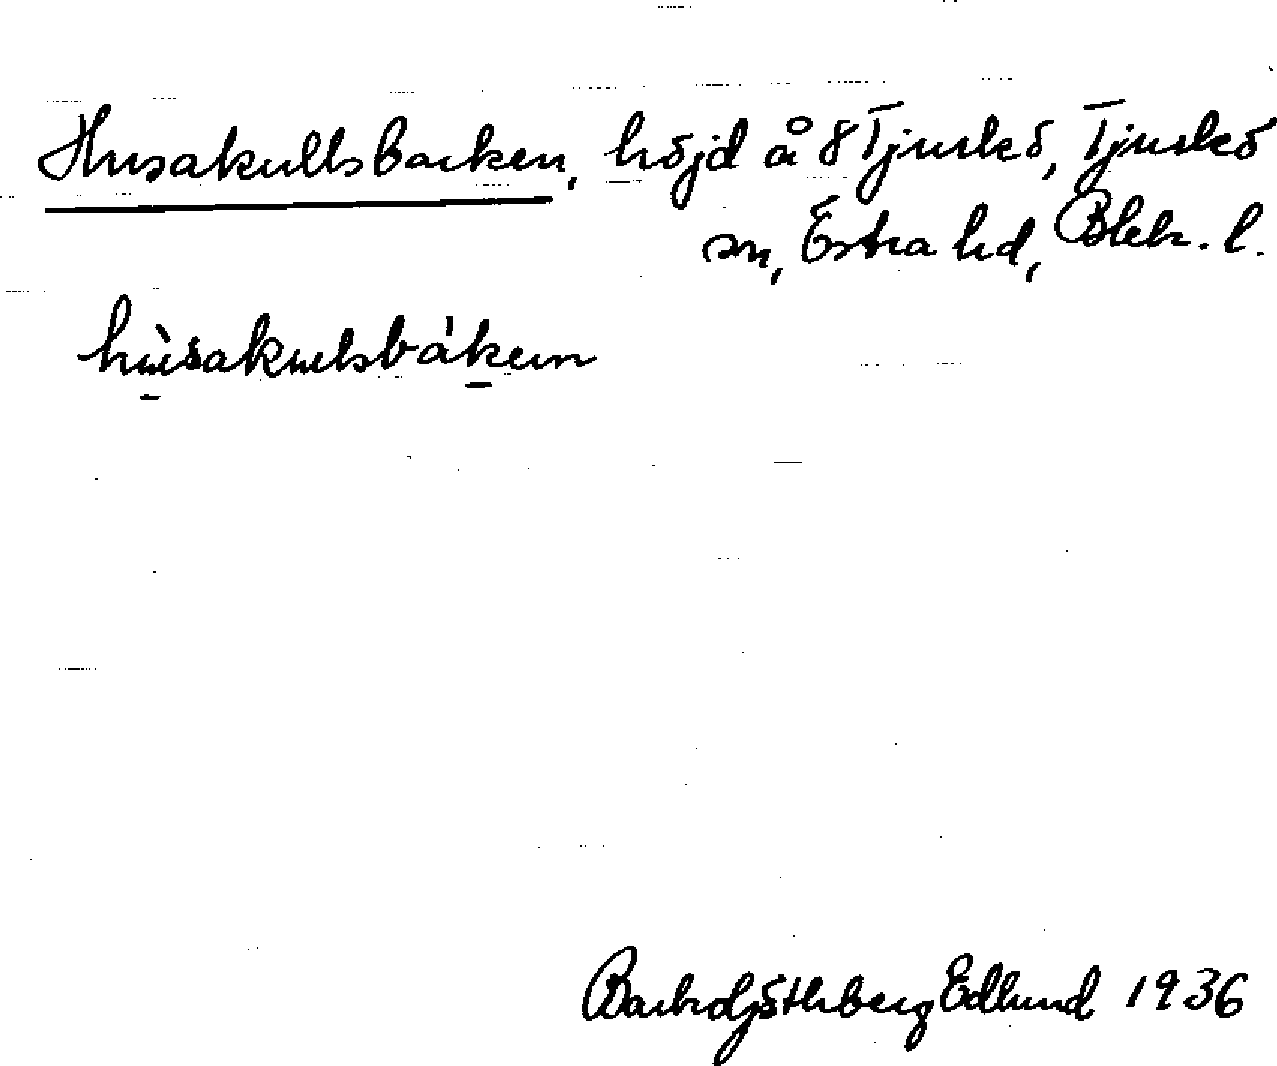 Husakullsbacken, höjd å 8 Tjurkö, Tjurkö
sn, Östra hd, Blek. l.
hùsakulsbáken
Edlund 1936